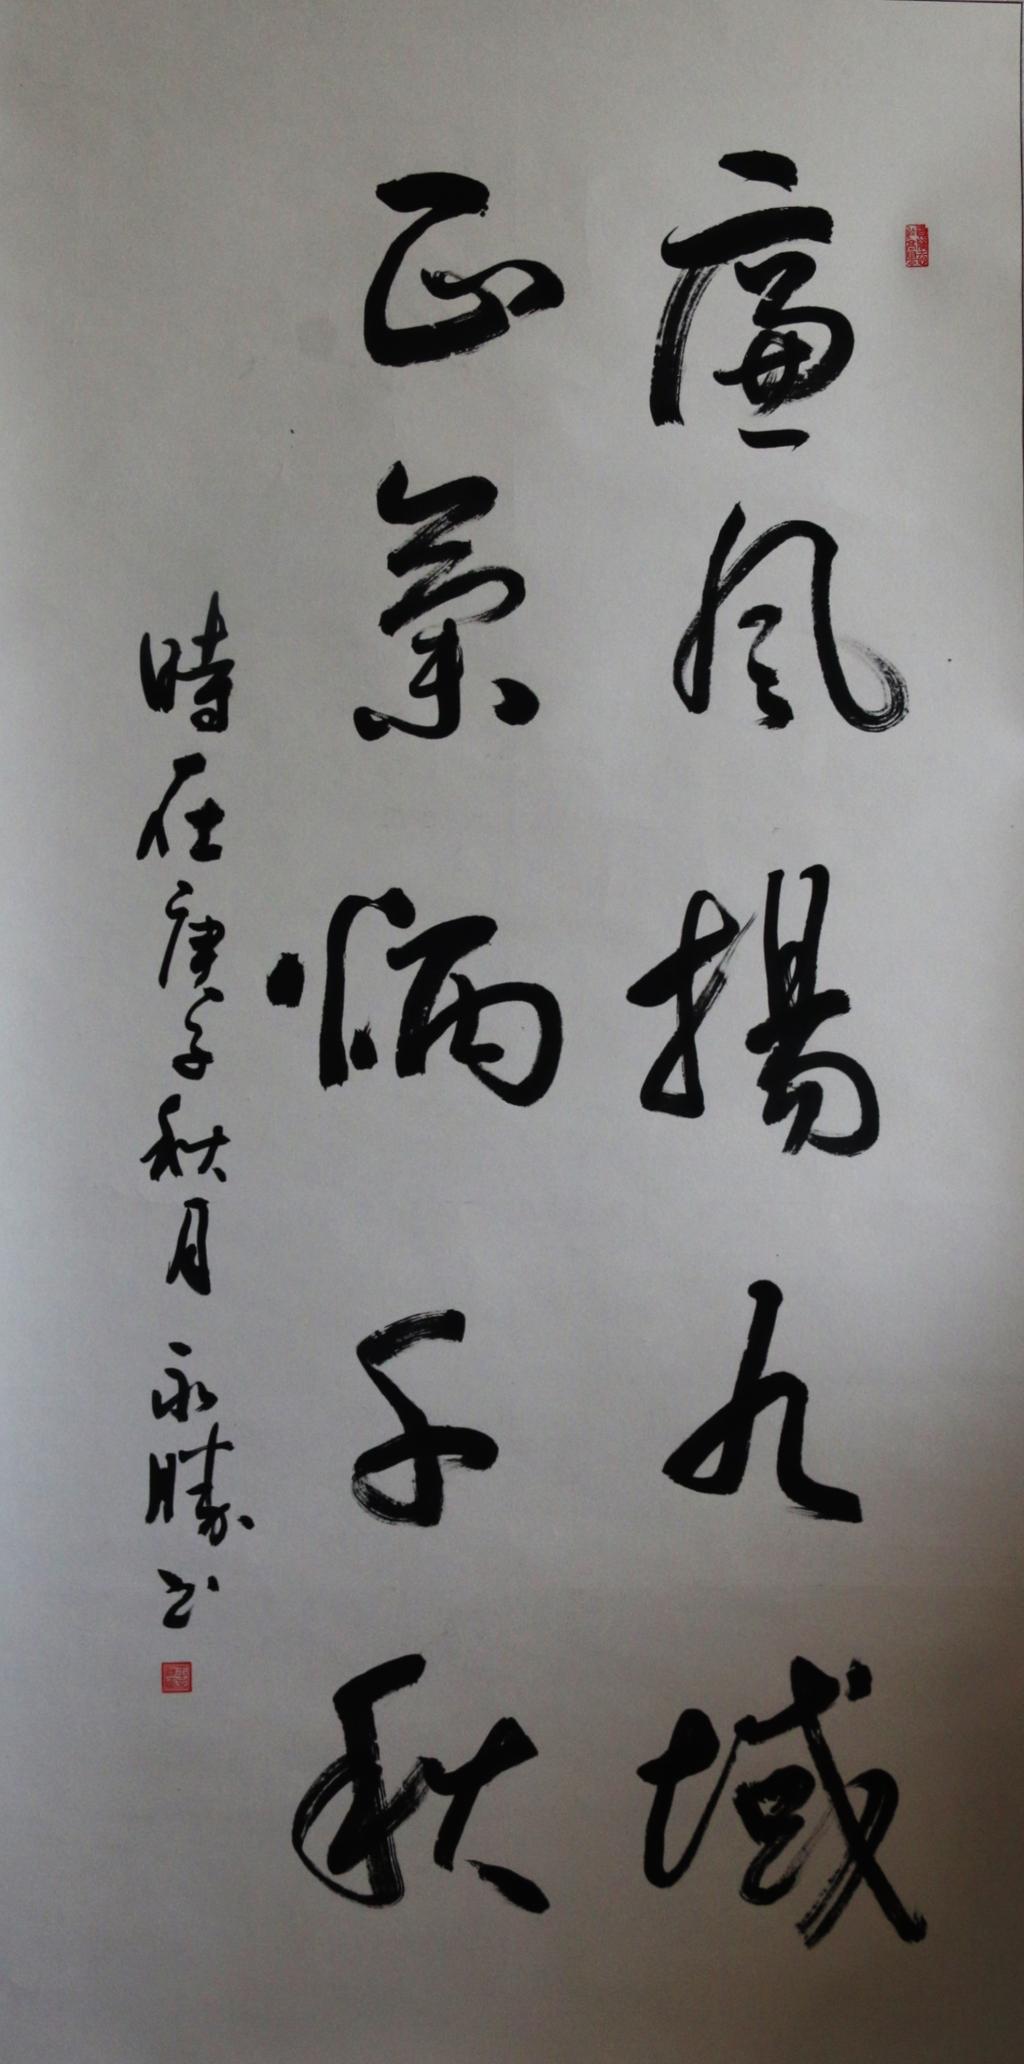 廉風揚九域
正氣炳千秋
時在庚子秋月 永勝书